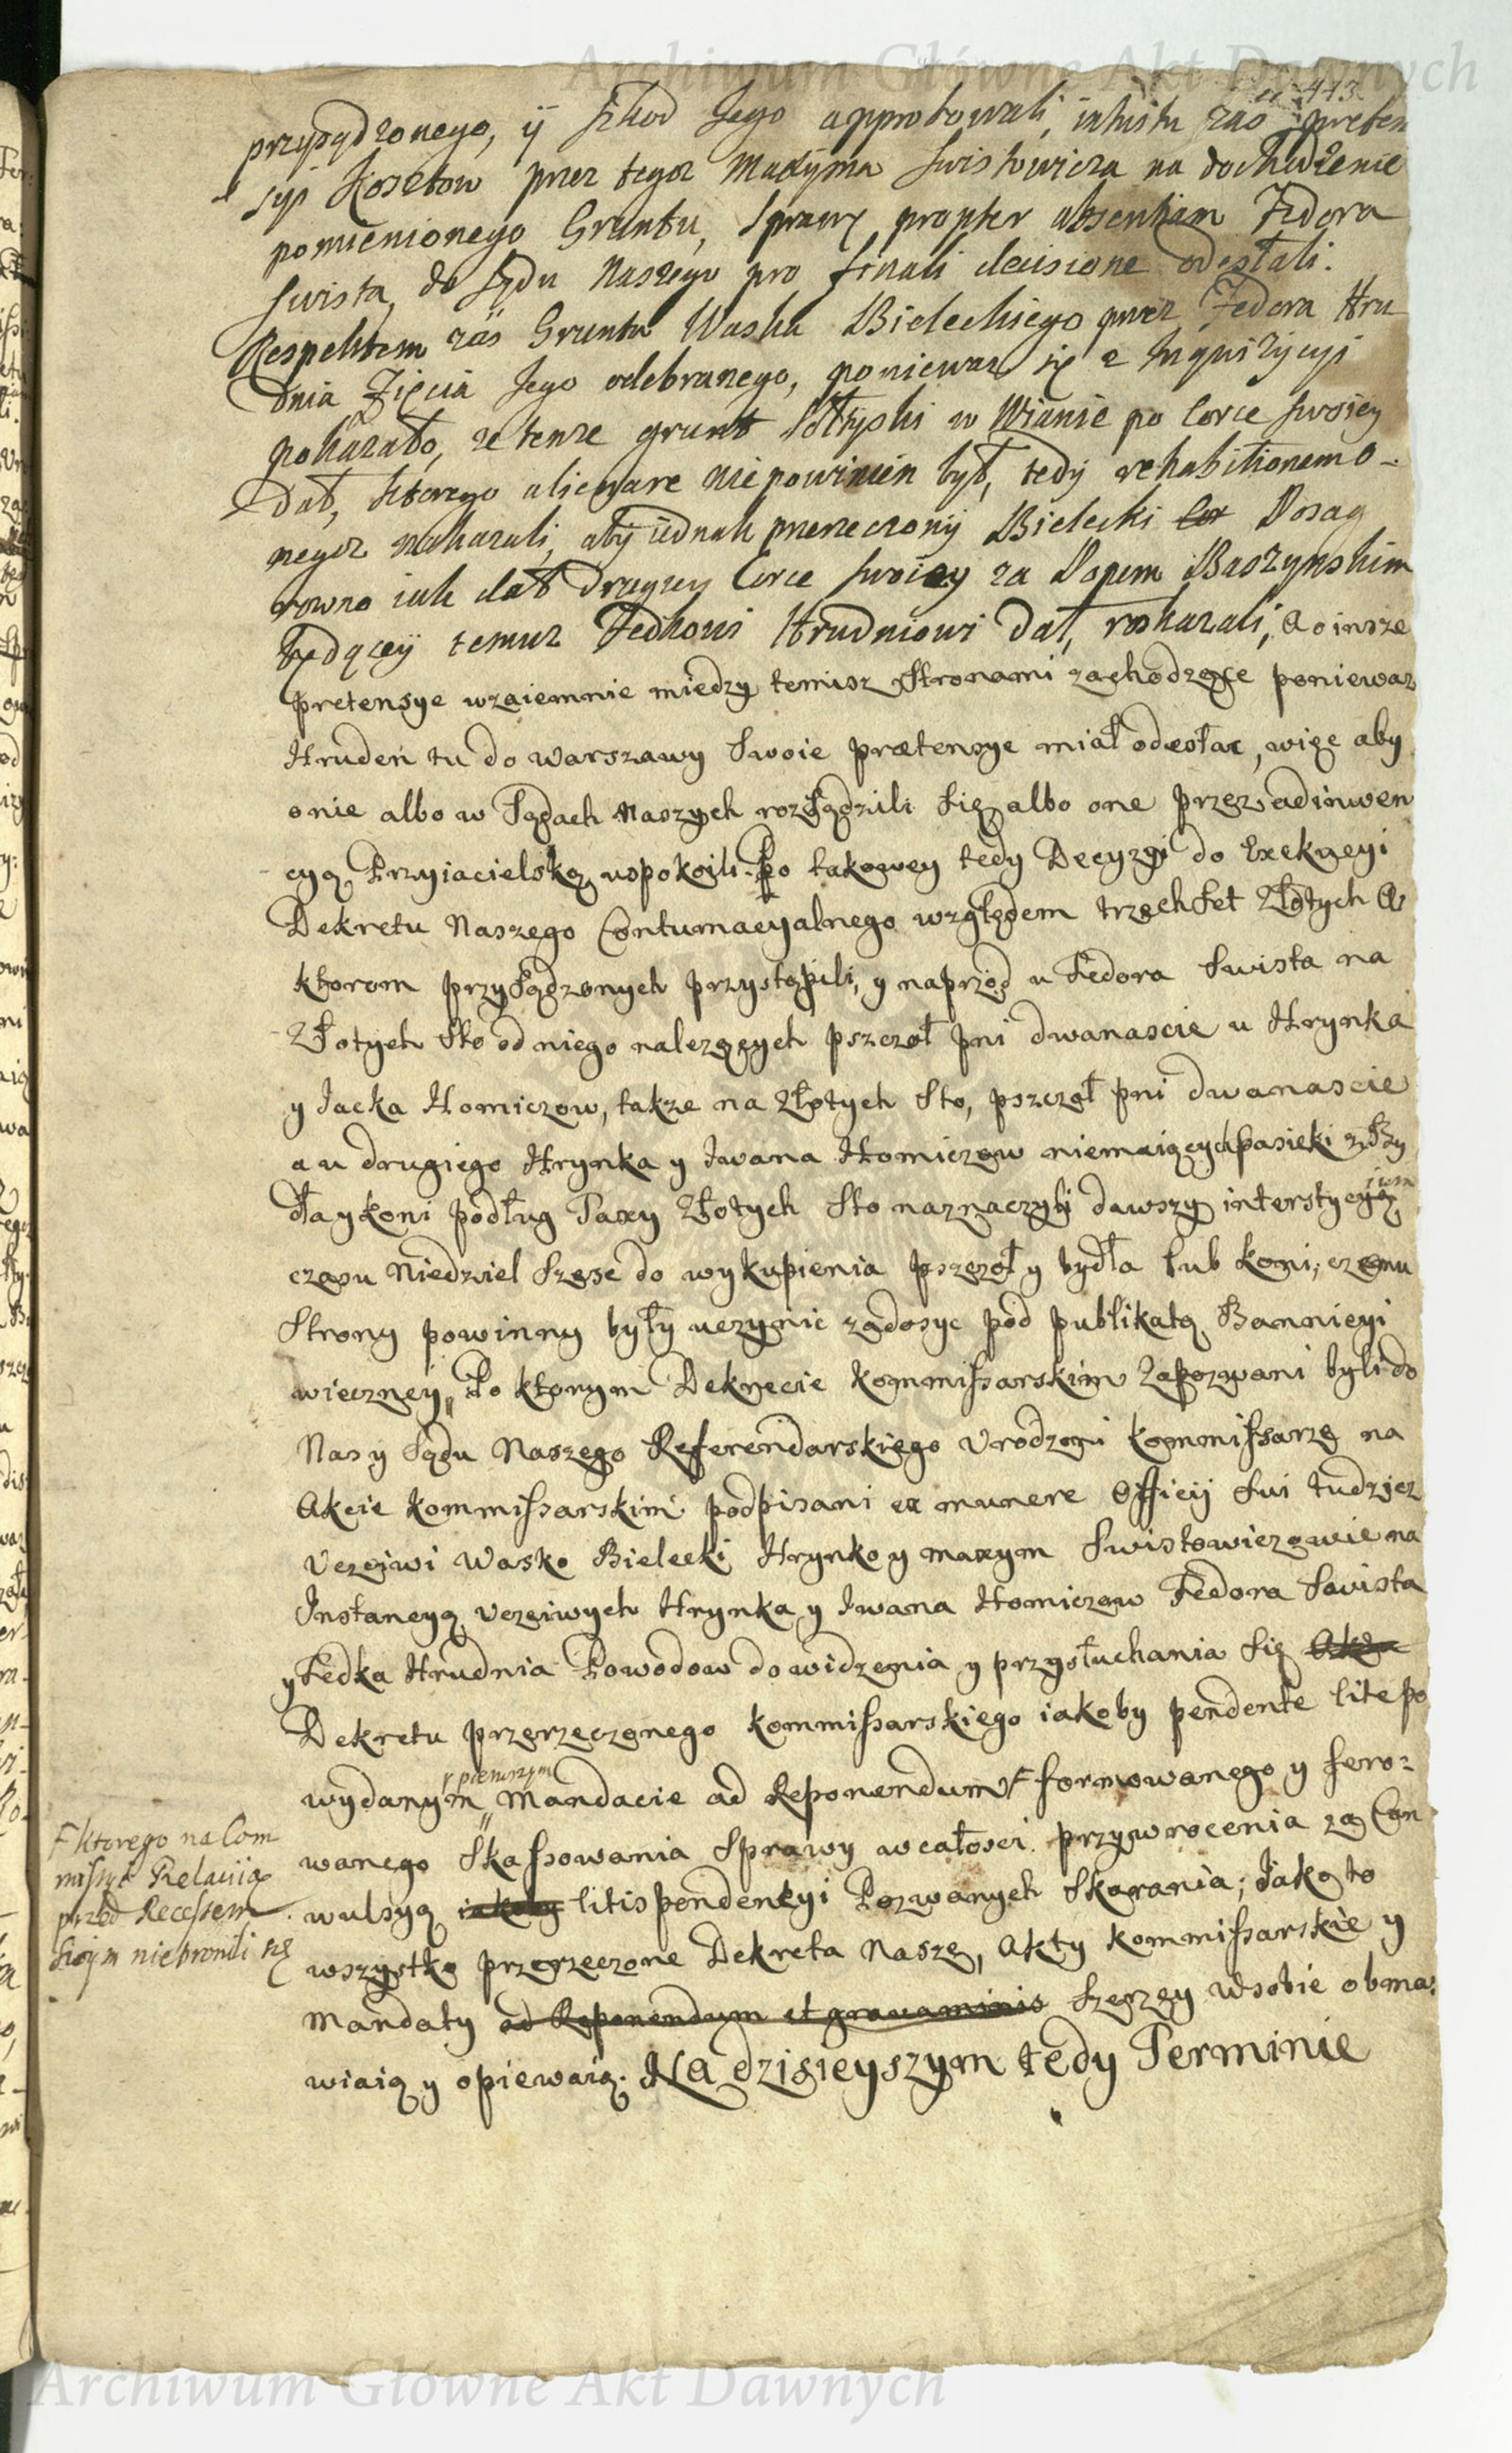 Archiwum Główne Akt Dawnych
413
przysądzonego, ÿ Szkod Jego approbowali, intuitu zaś preten
syi Kosztow przez tegoż Maxyma Swistowicza na dochodzenie
pomienionego Gruntu, Sprawę propter absentiam Fedora
Swista, do Sądu Naszego pro finali decisione odesłali.
Respektem zaś Gruntu Waska Bieleckiego przez Fedora Hru
dnia Zięcia Jego odebranego, poniewaz się z Inquizycyi
pokazało, ze tenze grunt Sołtyski w Wianie po Corce swoiey
dał, ktorego alienare niepowinien był, tedy rehabitionem o-
negoz nakazali, aby iednak przerzeczony Bielecki Posag
rowno iak dał drugiey Corce swoiey za Popem Baszynskim
będącey temuz Fedkowi Hrudniowi dał, roskazali, A o insze
pretensye wzaiemnie między temisz Stronami zachodzące poniewaz
Hruden tu do Warszawy Swoie prætensye miał odesłac, więc aby
onie albo w Sądach Naszych rozsądzili się albo one przez adinwen
cyą Przyiacielską uspokoili. Po takowey tedy Decyzyi do Exekucyi
Dekretu Naszego Contumacyalnego względem trzechset Złotych A
ktorom przysądzonych przystąpili, y naprzod u Fedora Swista na
Złotych Sto od niego nalezących pszczoł pni dwanascie u Hrynka
y Jacka Homiczow, takze na Złotych Sto, pszczoł pni dwanascie
a u drugiego Hrynka y Iwana Homiczow niemaiących pasieki z By
dła y koni podług Taxy Złotych Sto naznaczyli dawszy interstycyą
ium
czasu Niedziel Szesc do wykupienia pszczoł y bydła lub koni, czemu
Strony powinny były uczynic zadosyc pod publikatą Bannicyi
wieczney, Po ktorym Dekrecie Kommissarskim Zapozwani byli do
Nas y Sądu Naszego Referendarskiego Urodzeni Kommissarze na
Akcie Kommissarskim podpisani ex munere Officij Sui tudziez
Uczciwi Wasko Bielecki Hrynko y Maxym Swistowiczowie na
Instancyą Uczciwych Hrynka y Iwana Homiczow Fedora Swista
y Fedka Hrudnia Powodow do widzenia y przysłuchania się Akta
Dekretu przerzeczonego Kommissarskiego iakoby pendente lite po
wydanym Mandacie ad Reponendum F formowanego y fero=
y pierwszym
wanego Skassowania Sprawy wcałosci przywrocenia za Con
wulsyą iakoby litispendencyi Pozwanych Skarania; Jako to
wszystko przerzeczone Dekreta Nasze, Akty Kommissarskie y
Mandaty ad Reponendum et gravaminis Szerzey wsobie obma=
wiaią y opiewaią. Na dzisieyszym tedy Terminie
F ktorego na Com
missyi Relacyią
przed Recessem
Swym niebronili się
Archiwum Główne Akt Dawnych